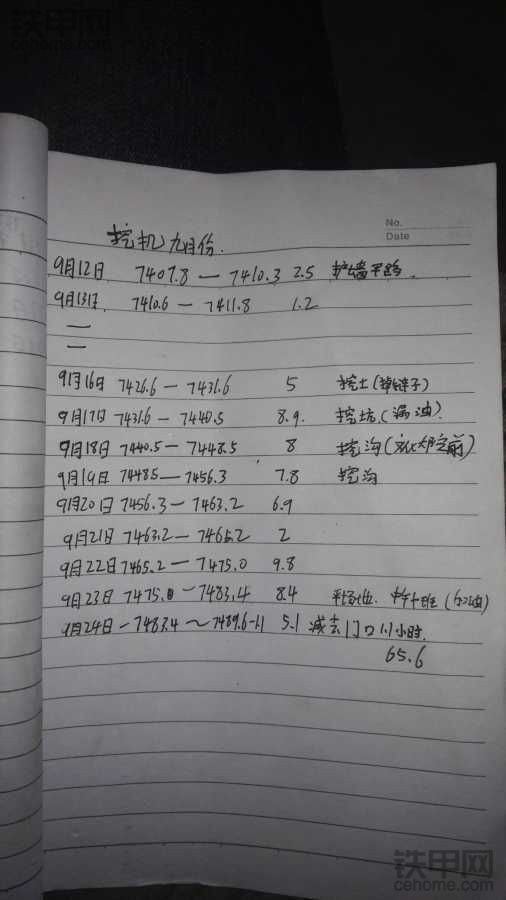 铁甲网
cehome.com
No.
Date
挖机九月份.
9月12日 7407.8 — 7410.3 2.5 护墙平路.
9月13日 7410.6 — 7411.8 1.2
—
—
9月16日 7426.6 — 7431.6 5 挖土(掉链子)
9月17日 7431.6 — 7440.5 8.9. 挖坑.(漏油).
9月18日 7440.5 — 7448.5 8 挖沟(前)
9月19日 7448.5 — 7456.3 7.8 挖沟
9月20日 7456.3 — 7463.2 6.9
9月21日 7463.2 — 7465.2 2
9月22日 7465.2 — 7475.0 9.8
9月23日 7475.0 — 7483.4 8.4 平场地.
9月24日 - 7483.4 ~ 7489.6-1.1 5.1 减去门口1.1小时.
65.6
铁甲网
cehome.com